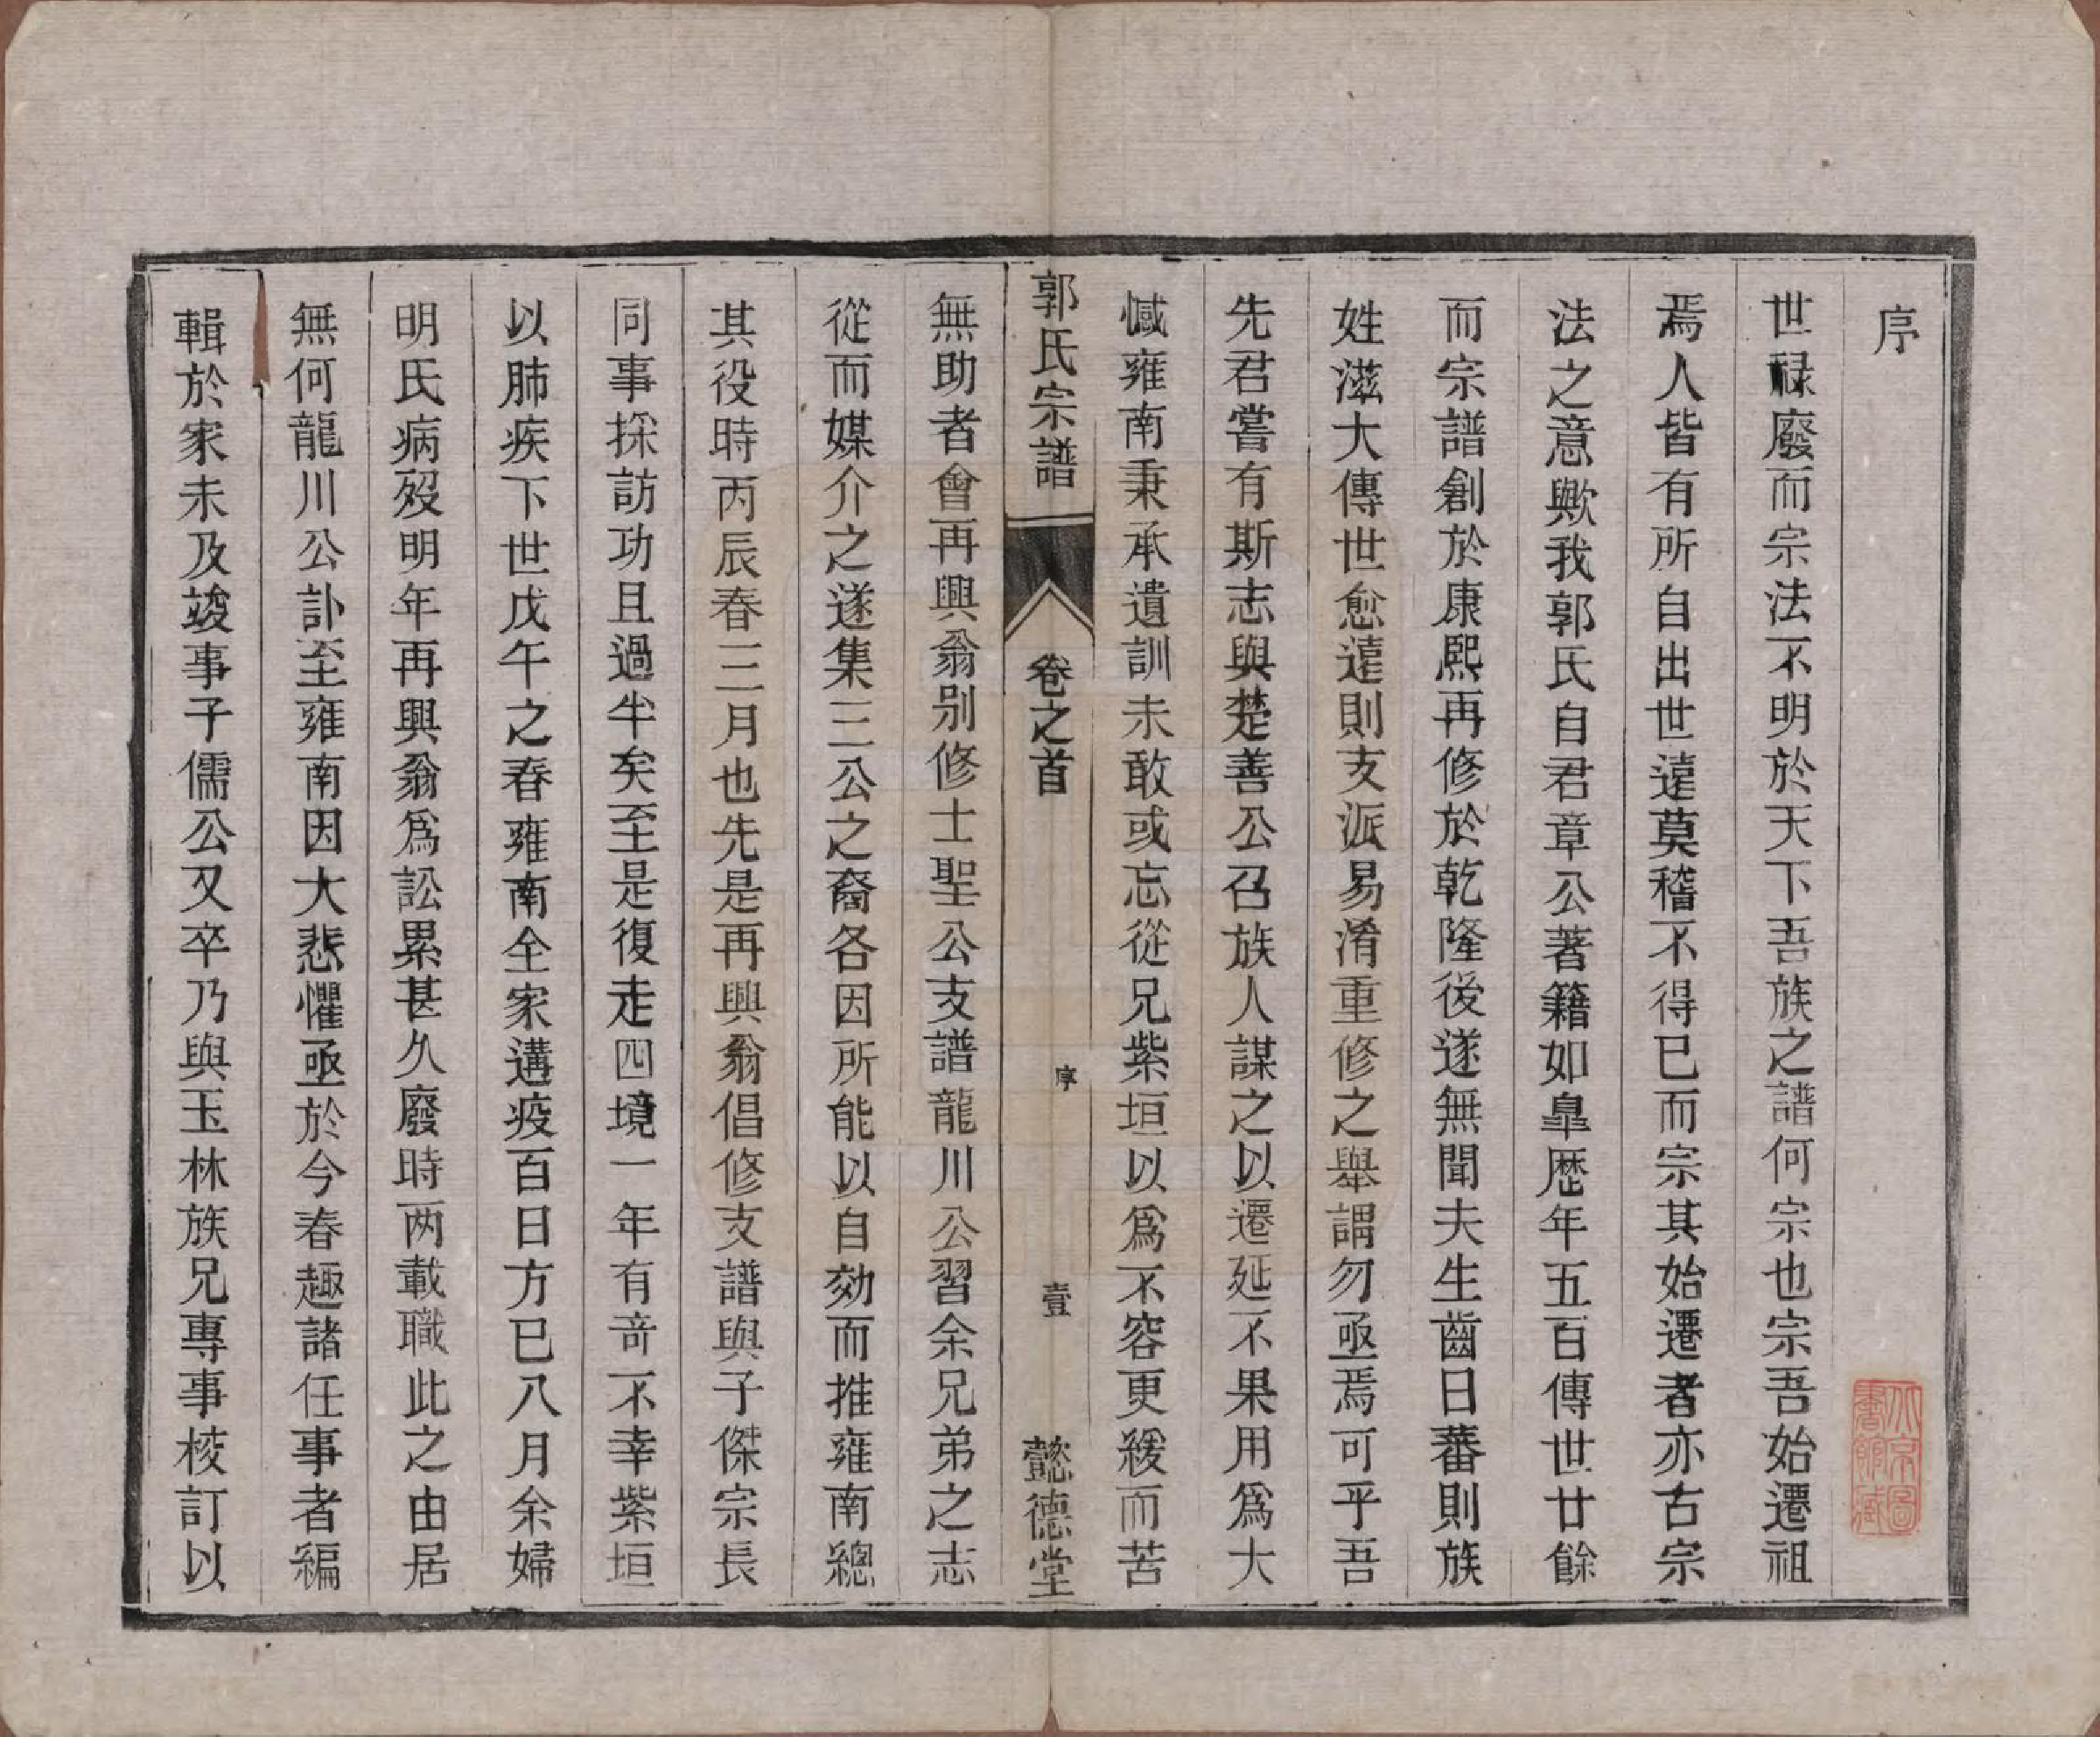 序
世祿廢而宗法不明於天下吾族之譜何宗也宗吾始遷祖
焉人皆有所自出世遠莫稽不得已而宗其始遷者亦古宗
法之意歟我郭氏自君章公著籍如臯歷年五百傳世廿餘
而宗譜創於康熙再修於乾隆後遂無聞夫生齒日蕃則族
姓滋大傳世愈遠則支派易淆重修之舉謂勿亟焉可乎吾
先君嘗有斯志與楚善公召族人謀之以遷延不果用爲大
憾雍南秉承遺訓未敢或忘從兄紫垣以爲不容更緩而苦
郭氏宗譜
卷之首
序
壹
懿德堂
無助者會再興翁别修士聖公支譜龍川公習余兄弟之志
從而媒介之遂集三公之裔各因所能以自効而推雍南總
其役時丙辰春三月也先是再興翁倡修支譜與子傑宗長
同事採訪功且過半矣至是復走四境一年有奇不幸紫垣
以肺疾下世戊午之春雍南全家遘疫百日方已八月余婦
明氏病歿明年再興翁爲訟累甚久廢時两載職此之由居
無何龍川公訃至雍南因大悲懼亟於今春趣諸任事者編
輯於家未及竣事子儒公又卒乃與玉林族兄專事校訂以
北京圖
書館藏